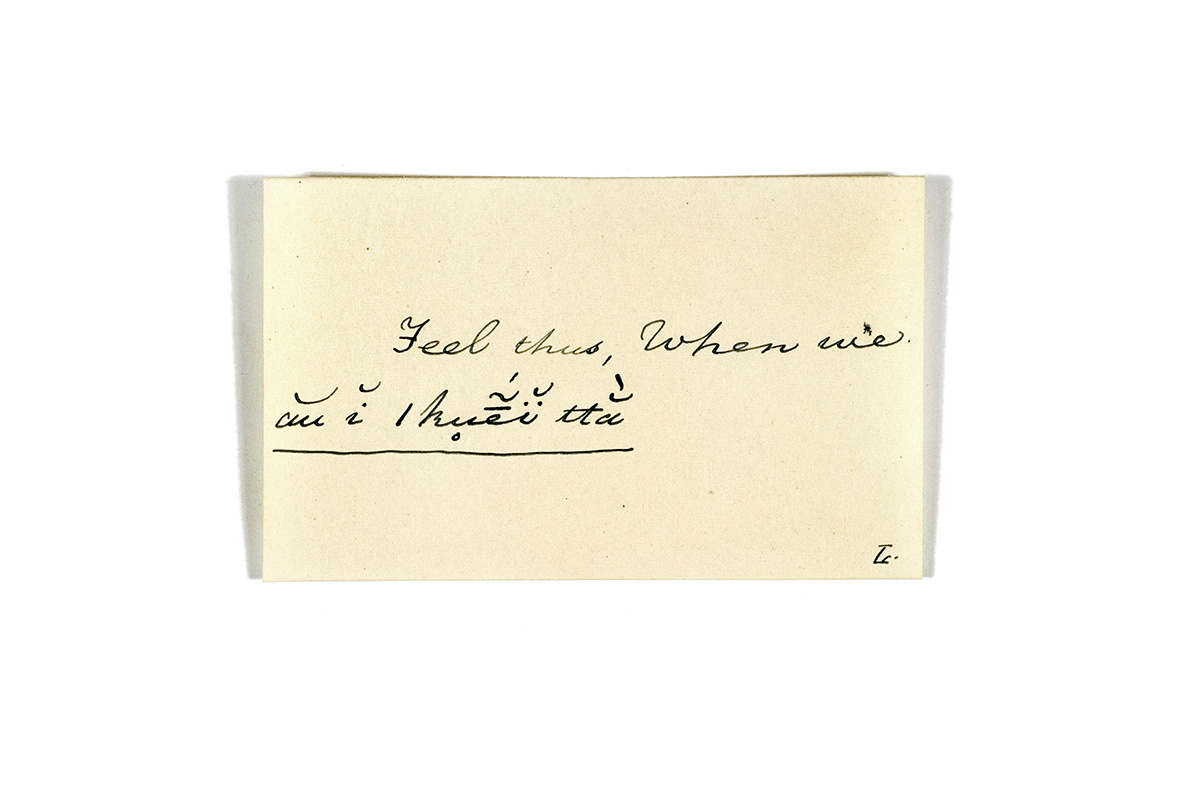 Feel thus, When we
ău ĭ lkụẽ́ĭ ttằ
L.